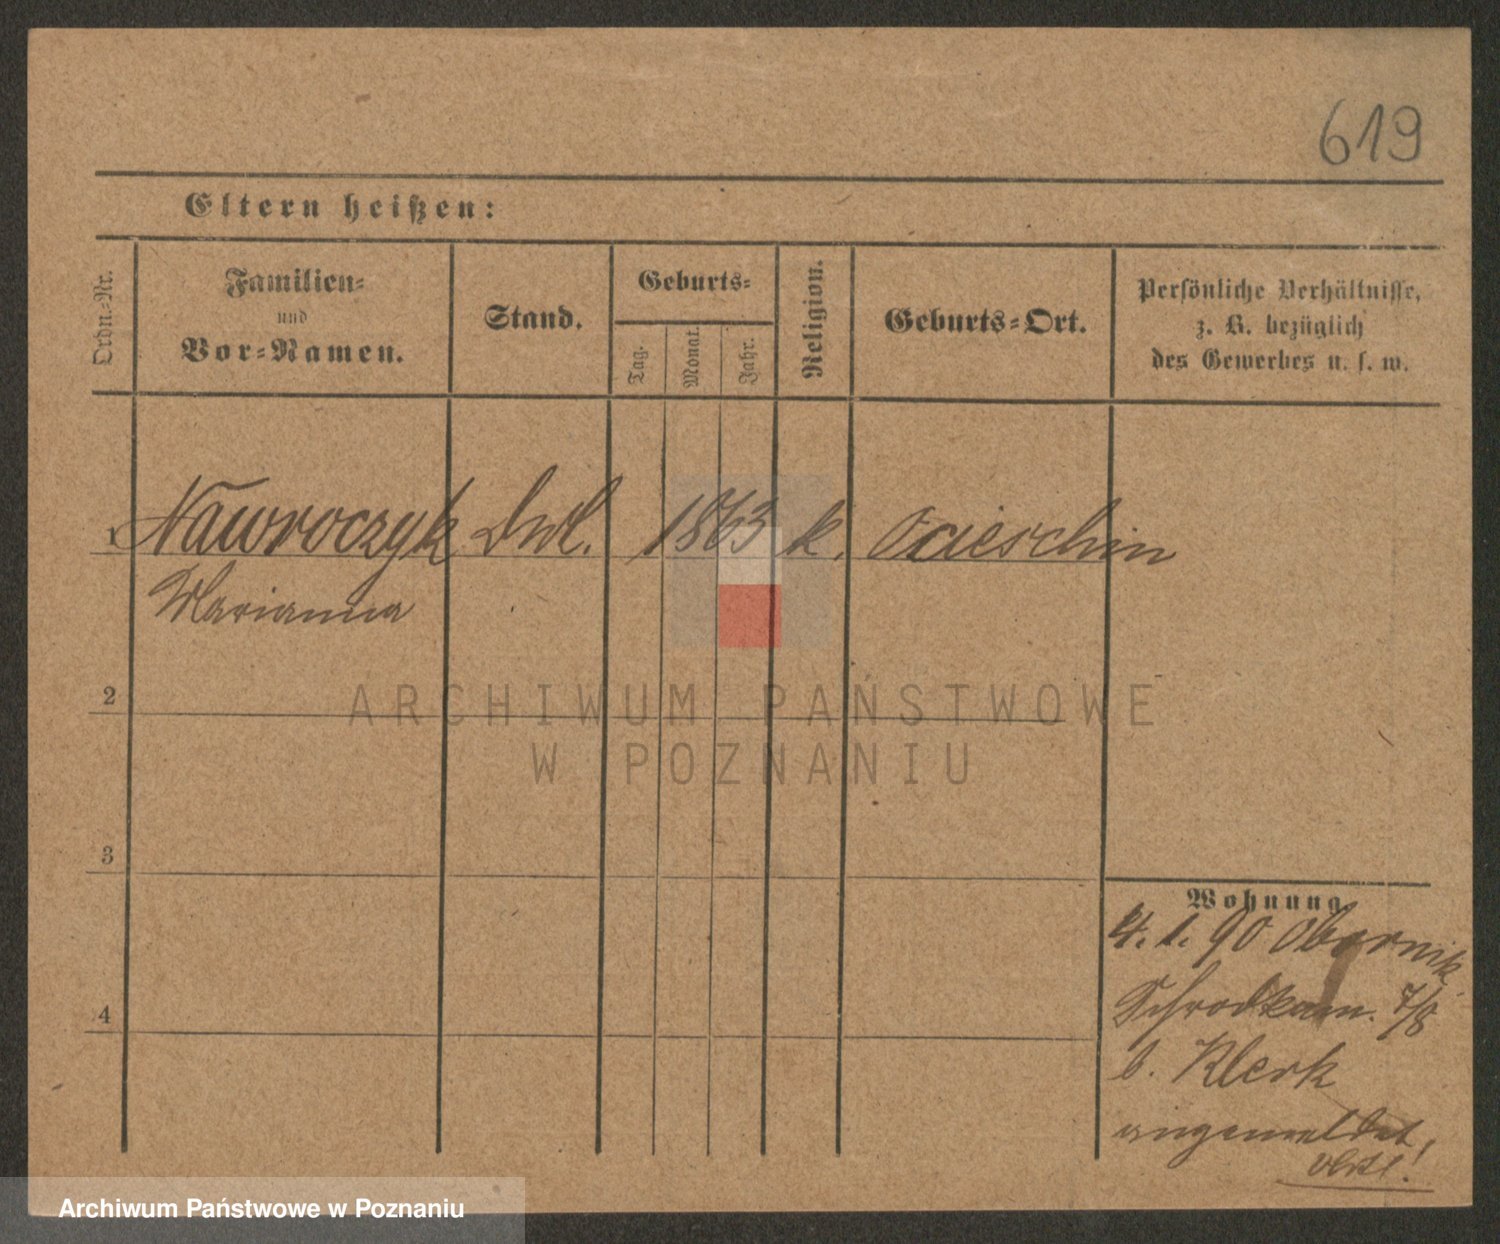 619
Eltern heißen:
Ordn.-Nr.
Familien-
und
Vor-Namen.
Stand.
Geburts-
Tag.
Monat.
Jahr.
Religion.
Geburts-Ort.
Persönliche Verhältnisse,
z. B. bezüglich
des Gewerbes u. s. w.
1 Nawroczyk 1863 k.
Marianna
2
ARCHIWUM PAŃSTWOWE
W POZNANIU
3
4
Wohnung.
4. 1. 90 Obornik
7/8
b. Klerk
angemeldet,
Archiwum Państwowe w Poznaniu